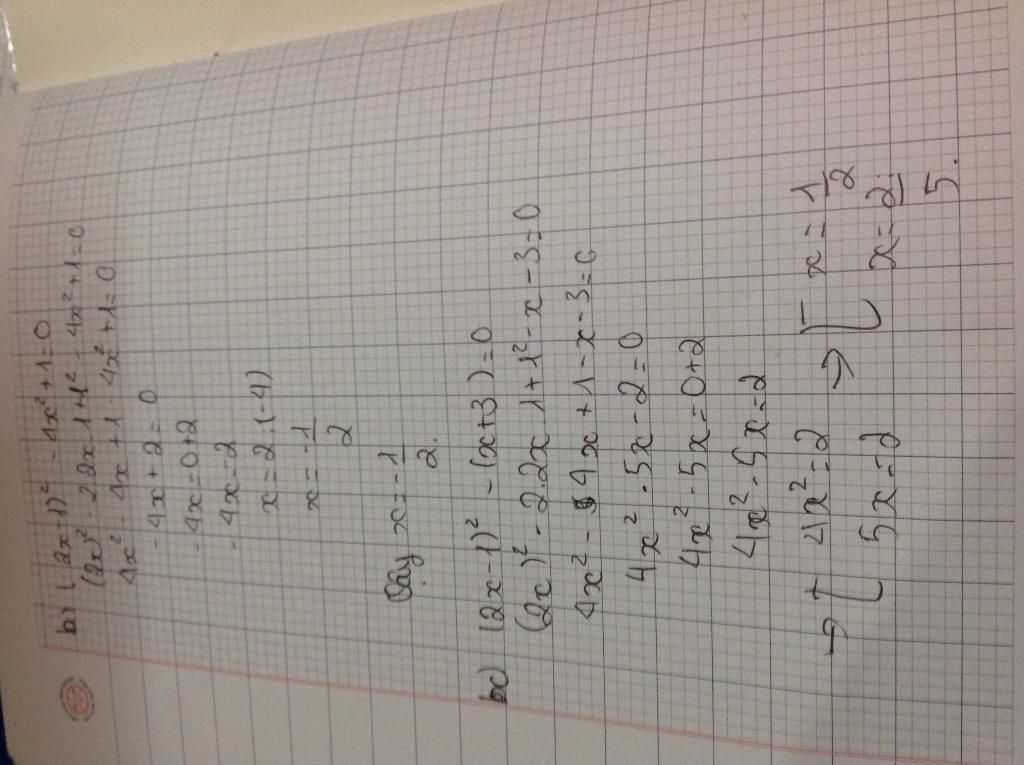 b) (2x-1)² - 4x² + 1 = 0
(2x)² - 2.2x.1 + 1² - 4x² + 1 = 0
4x² - 4x + 1 - 4x² + 1 = 0
- 4x + 2 = 0
- 4x = 0 + 2
- 4x = 2
x = 2 : (-4)
x = -1/2
Vậy x = -1/2.
c) (2x-1)² - (x+3) = 0
(2x)² - 2.2x.1 + 1² - x - 3 = 0
4x² - 4x + 1 - x - 3 = 0
4x² - 5x - 2 = 0
4x² - 5x = 0 + 2
4x² - 5x = 2
→ [ 4x² = 2 → [ x = 1/2
5x = 2 x = 2/5.